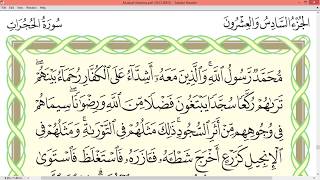 الجُزءُ السَّادِسُ وَالعِشْرُونَ
سُورَةُ الحُجُرَاتِ
مُّحَمَّدٌ رَّسُولُ ٱللَّهِ ۚ وَٱلَّذِينَ مَعَهُۥٓ أَشِدَّآءُ عَلَى ٱلْكُفَّارِ رُحَمَآءُ بَيْنَهُمْ ۖ
تَرَىٰهُمْ رُكَّعًا سُجَّدًا يَبْتَغُونَ فَضْلًا مِّنَ ٱللَّهِ وَرِضْوَٰنًا ۖ سِيمَاهُمْ
فِى وُجُوهِهِم مِّنْ أَثَرِ ٱلسُّجُودِ ۚ ذَٰلِكَ مَثَلُهُمْ فِى ٱلتَّوْرَىٰةِ ۚ وَمَثَلُهُمْ فِى
ٱلْإِنجِيلِ كَزَرْعٍ أَخْرَجَ شَطْـَٔهُۥ فَـَٔازَرَهُۥ فَٱسْتَغْلَظَ فَٱسْتَوَىٰ